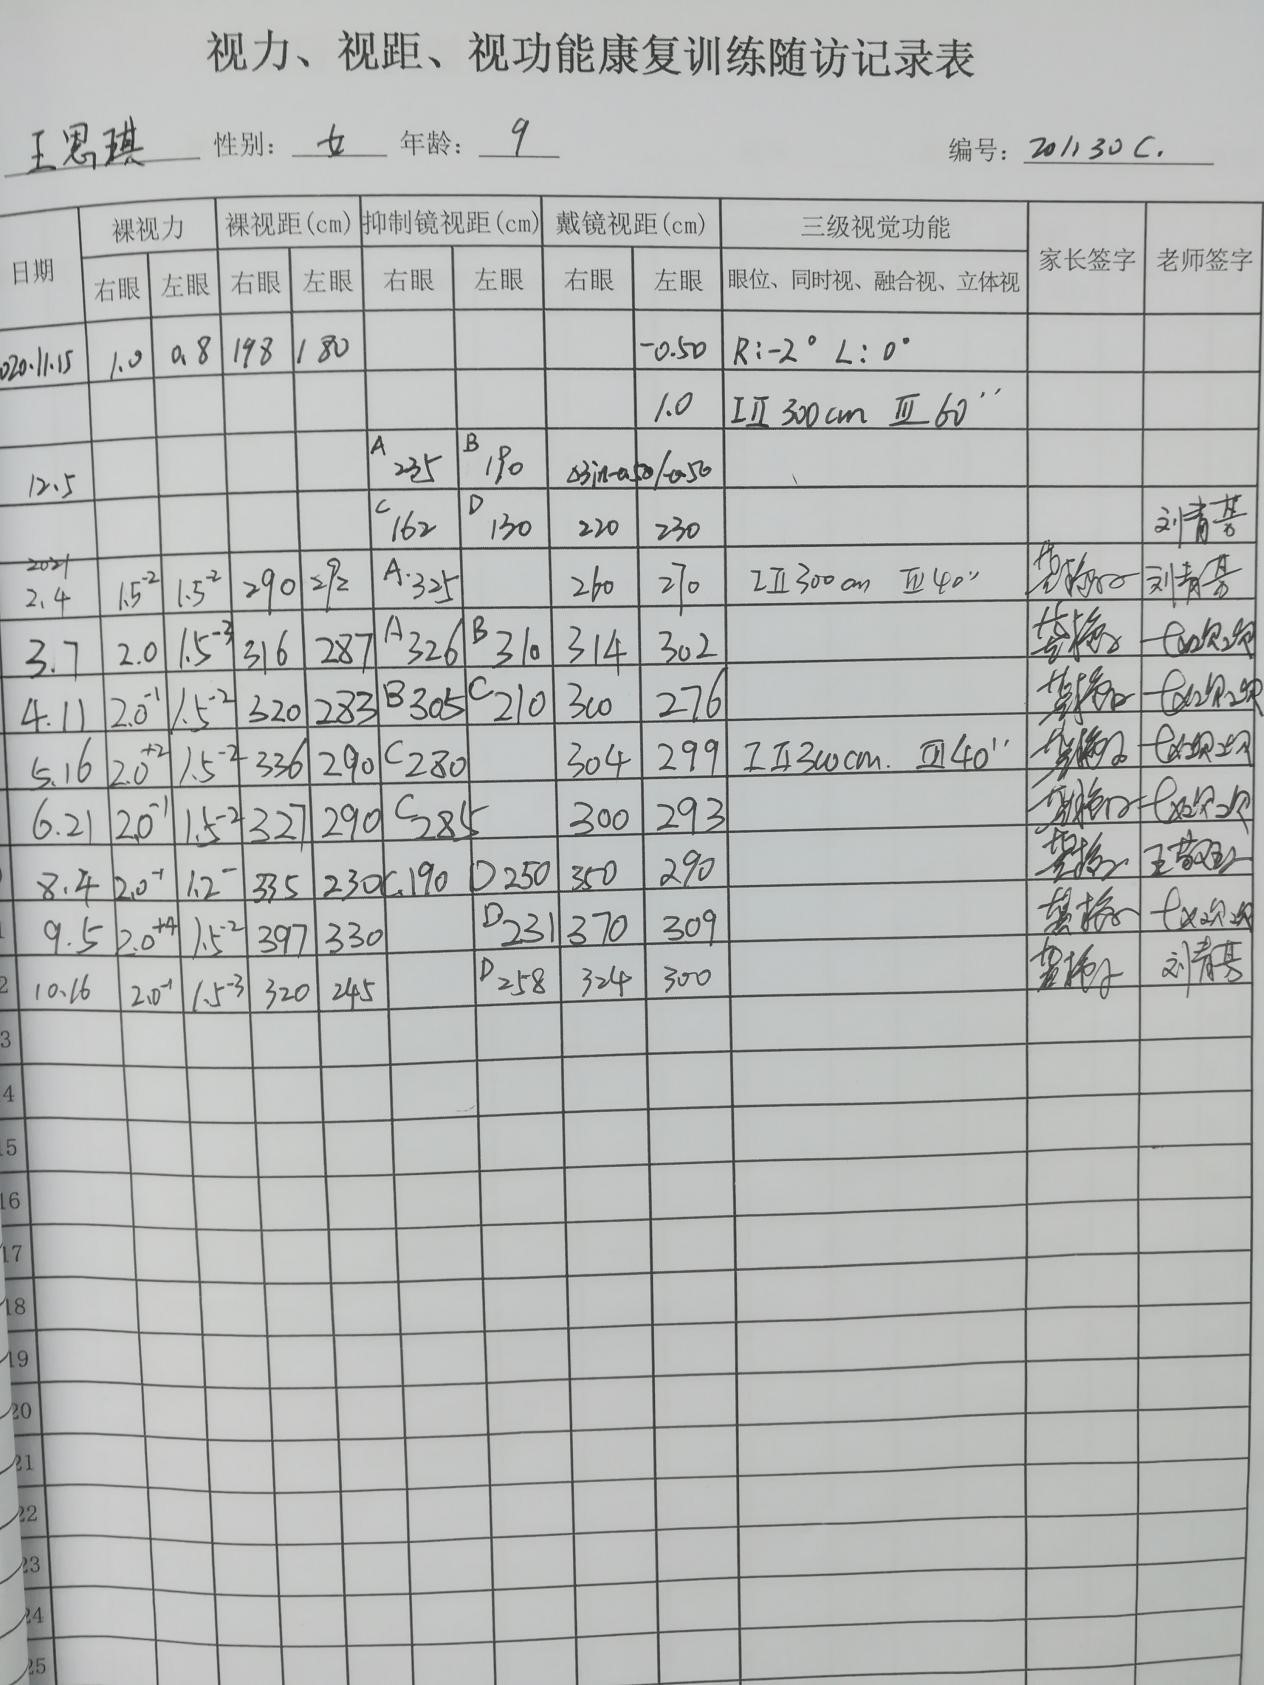 视力、视距、视功能康复训练随访记录表
王思琪 性别: 女 年龄: 9 编号: 201130C.
日期 裸视力 裸视距(cm) 抑制镜视距(cm) 戴镜视距(cm) 三级视觉功能 家长签字 老师签字
右眼 左眼 右眼 左眼 右眼 左眼 右眼 左眼 眼位、同时视、融合视、立体视
020.11.15 1.0 0.8 198 180 -0.50 R:-2° L:0°
1.0 I II 300cm III 60''
12.5 A 235 B 190
C 162 D 130 220 230 刘青
2021
2.4 1.5-2 1.5-2 290 292 A. 325 260 270 I II 300cm III 40'' 刘青
3.7 2.0 1.5-3 316 287 A 326 B 310 314 302
4.11 2.0-1 1.5-2 320 283 B 305 C 210 300 276
5.16 2.0+2 1.5-2 336 290 C 280 304 299 I II 300cm. III 40''
6.21 2.0-1 1.5-2 327 290 C 285 300 293
8.4 2.0-1 1.2- 335 230 C.190 D 250 350 290
9.5 2.0+4 1.5-2 397 330 D 231 370 309
2 10.16 2.0-1 1.5-3 320 245 D 258 324 300 刘青
3
4
15
16
17
18
19
20
21
22
23
24
25